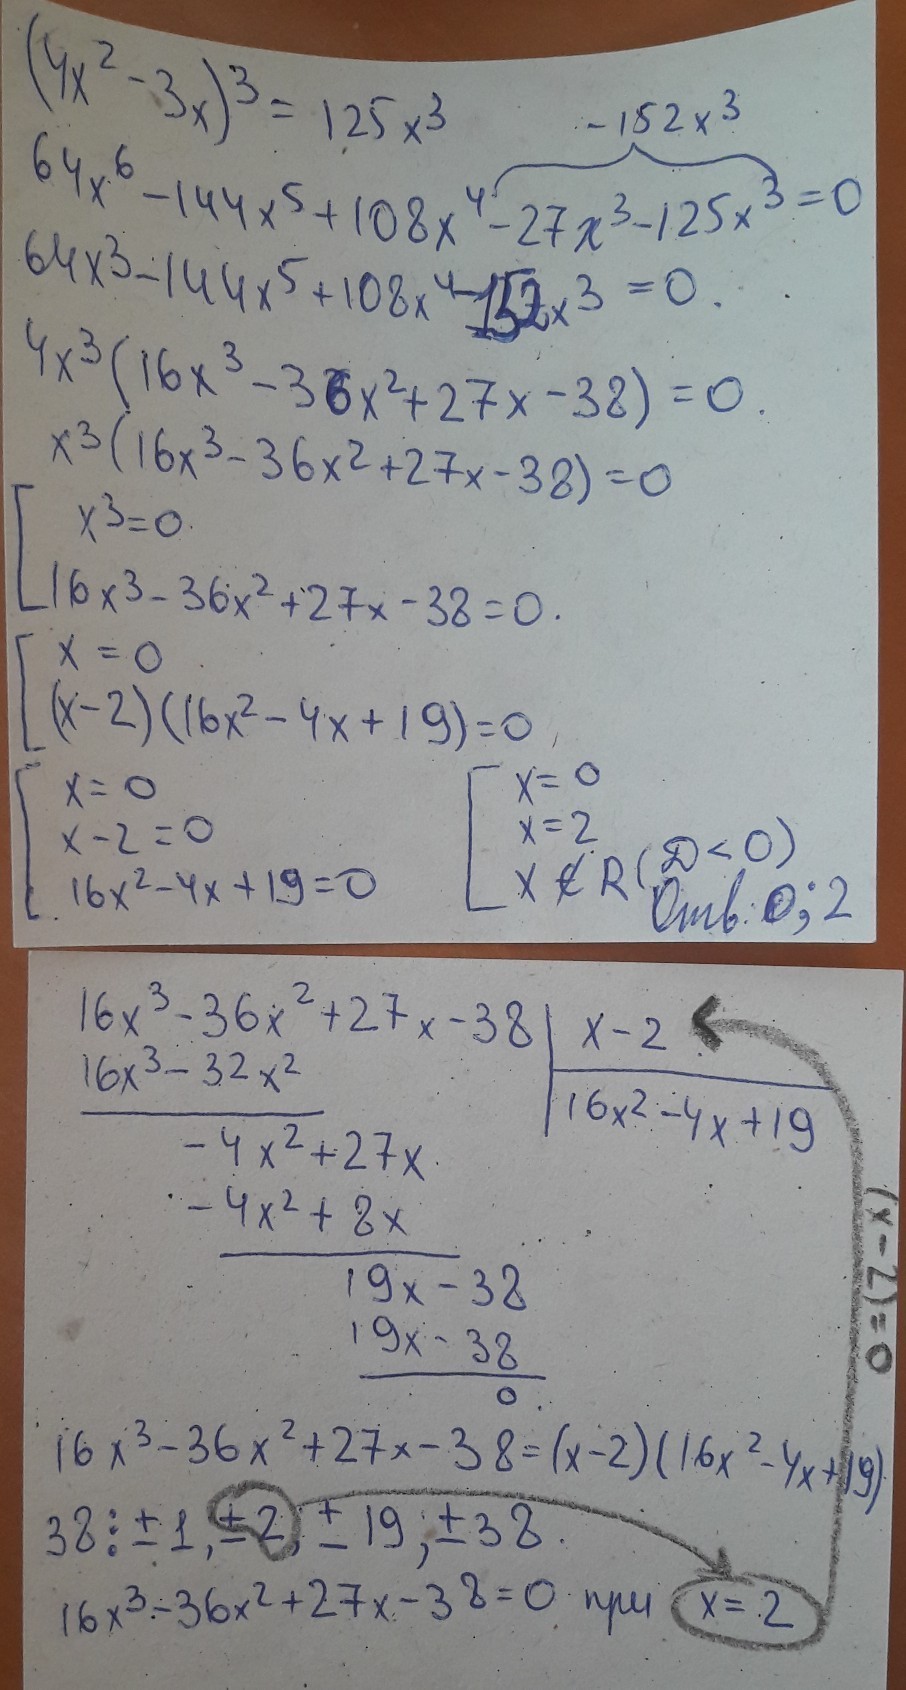 (4x² - 3x)³ = 125x³
-152x³
64x⁶ - 144x⁵ + 108x⁴ - 27x³ - 125x³ = 0
64x³ - 144x⁵ + 108x⁴ - 152x³ = 0.
4x³(16x³ - 36x² + 27x - 38) = 0.
x³(16x³ - 36x² + 27x - 38) = 0
x³ = 0
16x³ - 36x² + 27x - 38 = 0.
x = 0
(x-2)(16x² - 4x + 19) = 0
x = 0
x - 2 = 0
16x² - 4x + 19 = 0
x = 0
x = 2
x ∉ R (D < 0)
Отв: 0; 2
16x³ - 36x² + 27x - 38 | x - 2
16x³ - 32x²
16x² - 4x + 19
-4x² + 27x
-4x² + 8x
19x - 38
19x - 38
0
(x-2)=0
16x³ - 36x² + 27x - 38 = (x-2)(16x² - 4x + 19)
38 ⋮ ±1, ±2; ±19; ±38.
16x³ - 36x² + 27x - 38 = 0 при x = 2